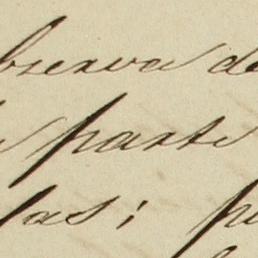 bserva de
parte
las; p